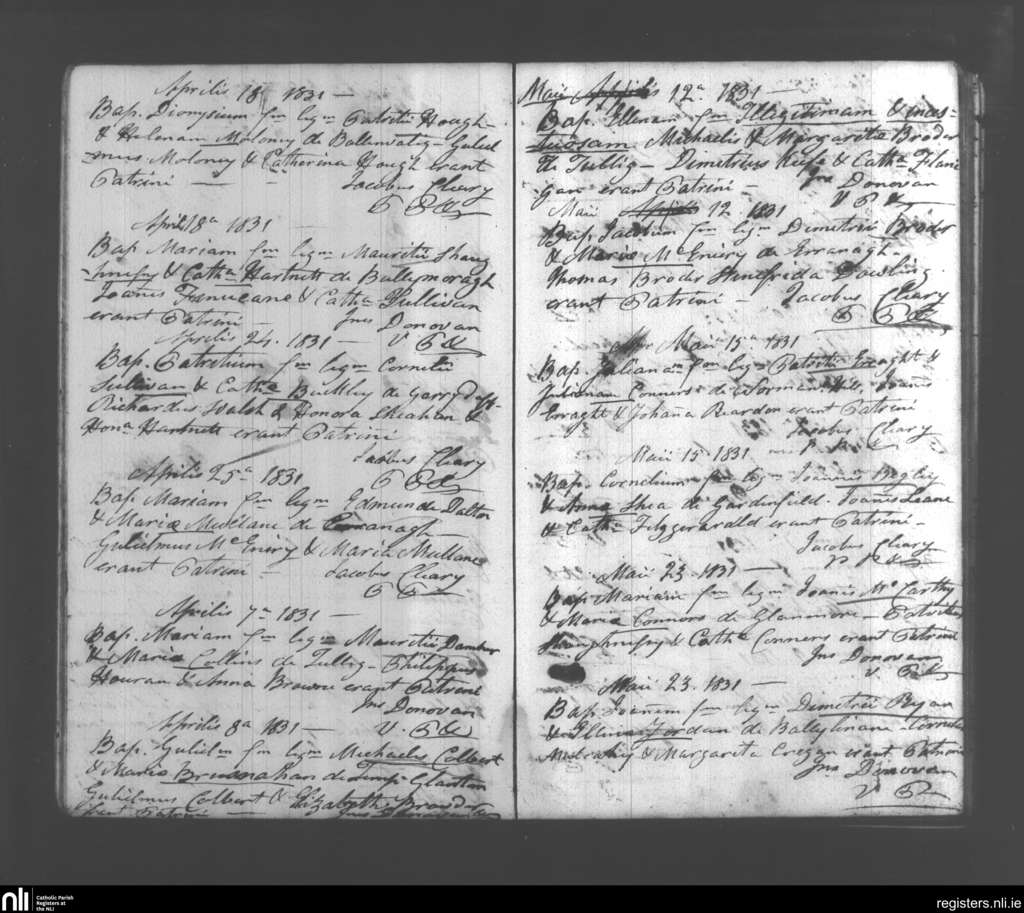 Aprilis 18 1831 —
Bap. Dionysium fm legm Patritii Hough
& Helenam Moloney de Guliel
mus Moloney & Catherina Hough erant
Patrini — Jacobus Cleary
P P &
April 18a 1831
Bap Mariam fm legm Mauritii Shaug
hnesy & Catha Hartnett de Ballymoragh
Joanis Finucane & Catha Sullivan
erant Patrini — Jns Donovan
Aprilis 24. 1831 — V P &
Bap. Patritium fm legm Cornelii
Sullivan & Catha Buckley de Garryduff
Richardus Walsh & Honora Sheahan &
Hona Hartnett erant Patrini
Jacobus Cleary
Aprilis 25a 1831 P P &
Bap Mariam fm legm Edmundi Dalton
& Maria de
Gulielmus McEniry & Maria Mullane
erant Patrini — Jacobus Cleary
P P &
Aprilis 7a 1831 —
Bap. Mariam fm legm Mauritii
& Maria Collins de Tullig — Philippus
Houran & Anna Browne erant Patrini
Jns Donovan
Aprilis 8a 1831 — V. P &
Bap. Gulielm fm legm Michaelis Colbert
& Maria de Glanton
Gulielmus Colbert & Elizabetha
erant Patrini — Jns Donovan
Maii Aprilis 12a 1831 —
Bap. Ellenam fm Illigitimam & inces-
tuosam Michaelis & Margaritta Broder
de Tullig — Demetrius Keefe & Catha Flani
gan erant Patrini — Jns Donovan
Maii Aprilis 12. 1831 V P &
Bap. Jacobum fm legm Demetrii Broder
& Maria McEniry de Erranagh —
Thomas Broder Dowling
erant Patrini — Jacobus Cleary
P P &
Maii 15a 1831
Bap. Julianam fm legm Patritii Enraght &
Julianam Connors de Joanis
Enraght & Johana Reardon erant Patrini
Jacobus Cleary
Maii 15 1831 — P P &
Bap. Cornelium fm legm Joannis Begley
& Anna Shea de Gardenfield. Joanis Leane
& Catha Fitzgerarald erant Patrini —
Jacobus Cleary
Maii 23. 1831 — P P &
Bap Mariam fm legm Joanis McCarthy
& Maria Connors de Glanmore — Patritius
Shaughnesny & Catha Conners erant Patrini
Jns Donovan
Maii 23. 1831 — V. P &
Bap. Joanem fm legm Demetrii Ryan
& Jordan de
Mulcahy & Margarita Cregan erant Patrini
Jns Donovan
V P
nli
Catholic Parish
Registers at
the NLI
registers.nli.ie